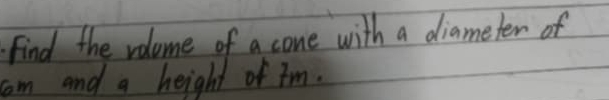 . Find the volume of a cone with a diameter of
6m and a height of 7m.